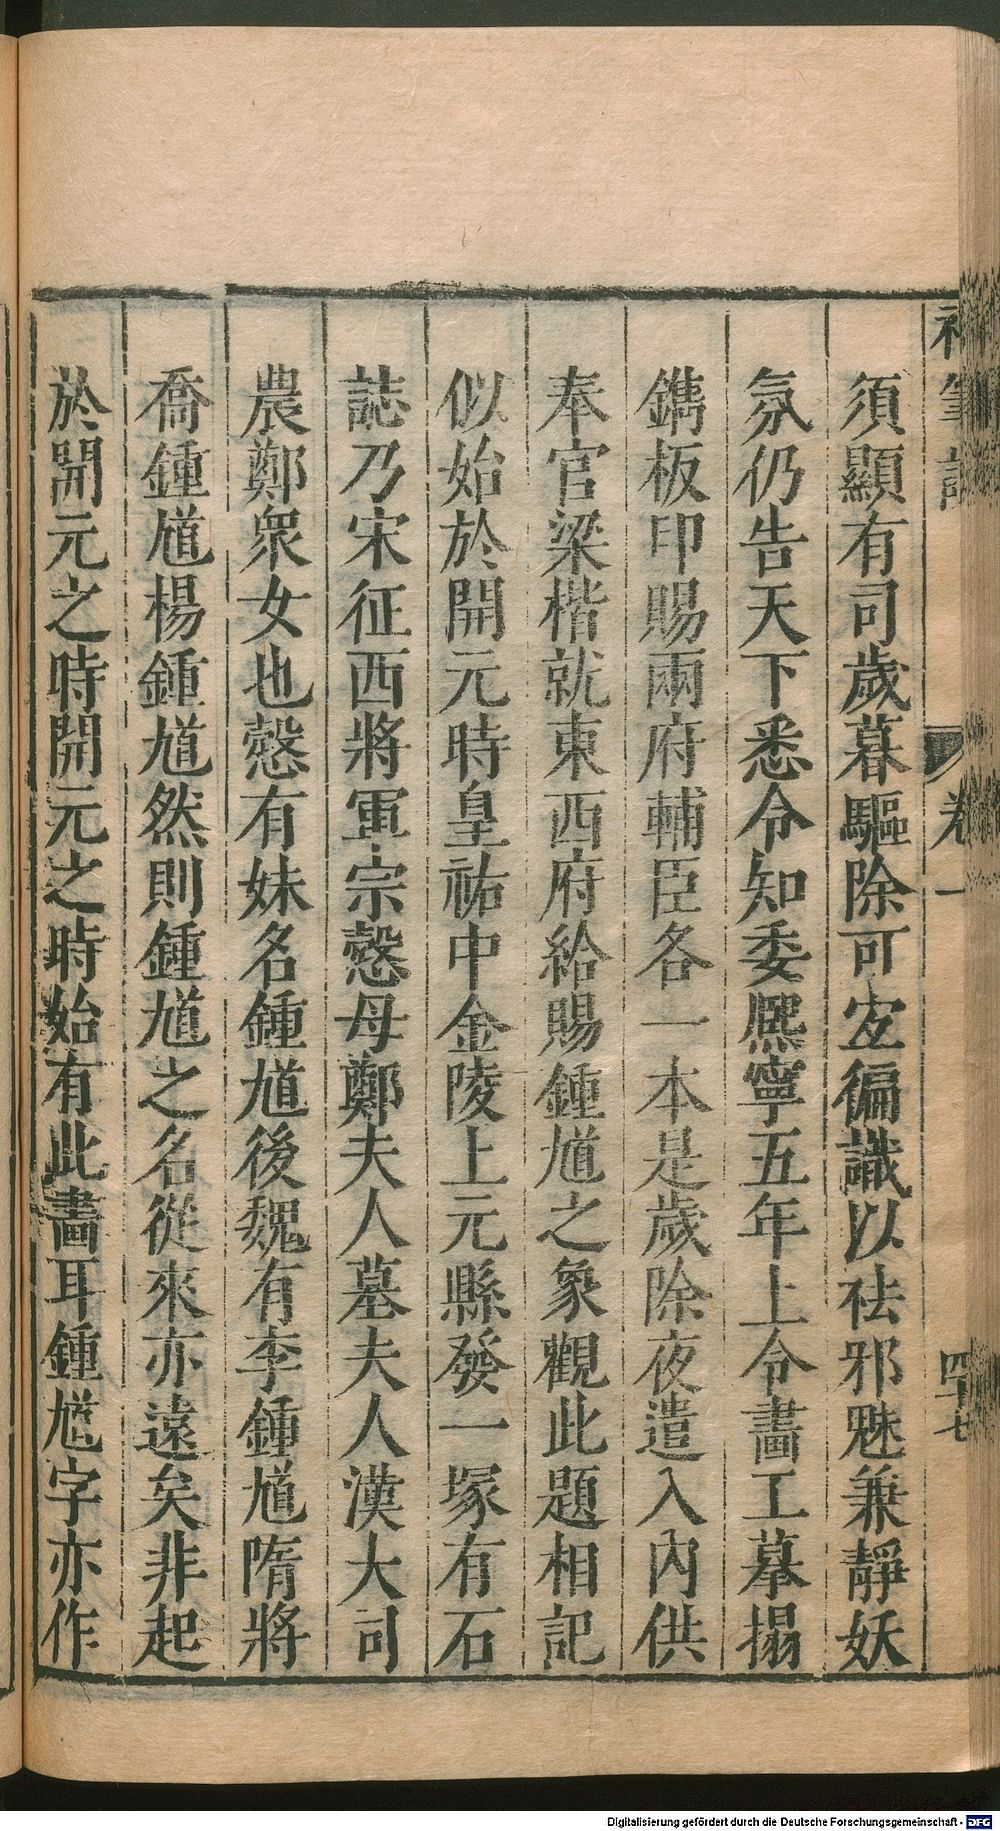 須顯有司歲暮驅除可宐徧識以祛邪魅兼靜妖
氛仍告天下悉令知委熙寧五年上令畫工摹搨
鐫板印賜兩府輔臣各一本是歲除夜遣入內供
奉官梁楷就東西府給賜鍾馗之象觀此題相記
似始於開元時皇祐中金陵上元縣發一塚有石
誌乃宋征西將軍宗慤母鄭夫人墓夫人漢大司
農鄭衆女也慤有妹名鍾馗後魏有李鍾馗隋將
喬鍾馗楊鍾馗然則鍾馗之名從來亦遠矣非起
於開元之時開元之時始有此畵耳鍾馗字亦作
卷一
四十七
Digitalisierung gefördert durch die Deutsche Forschungsgemeinschaft - DFG